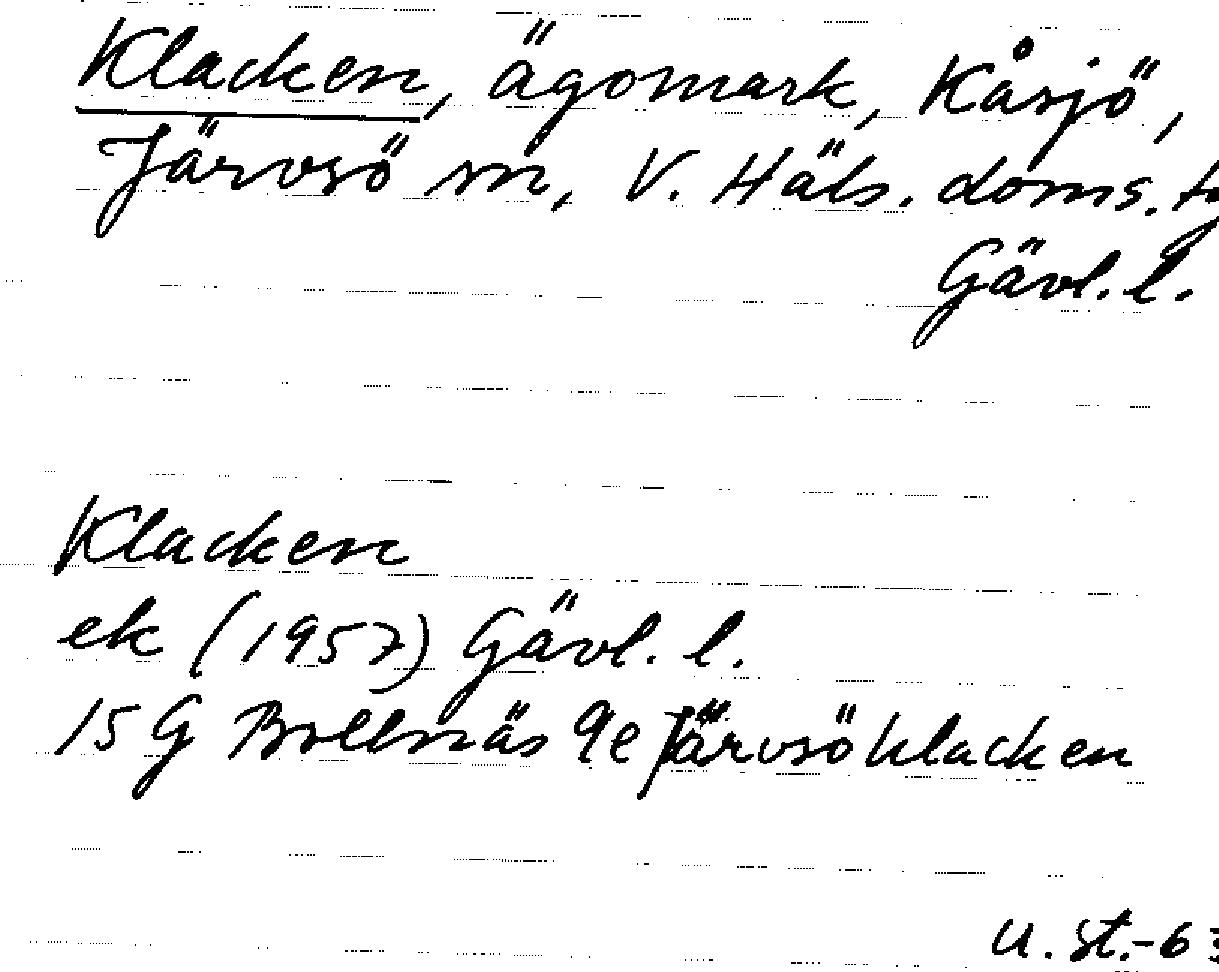 Klacken, ägomark, Kåsjö,
Järvsö sn, V. Häls. doms.
Gävl. l.
Klacken
ek (1957) Gävl. l.
15 G Bollnäs 9e Järvsöklacken
U. St.-6